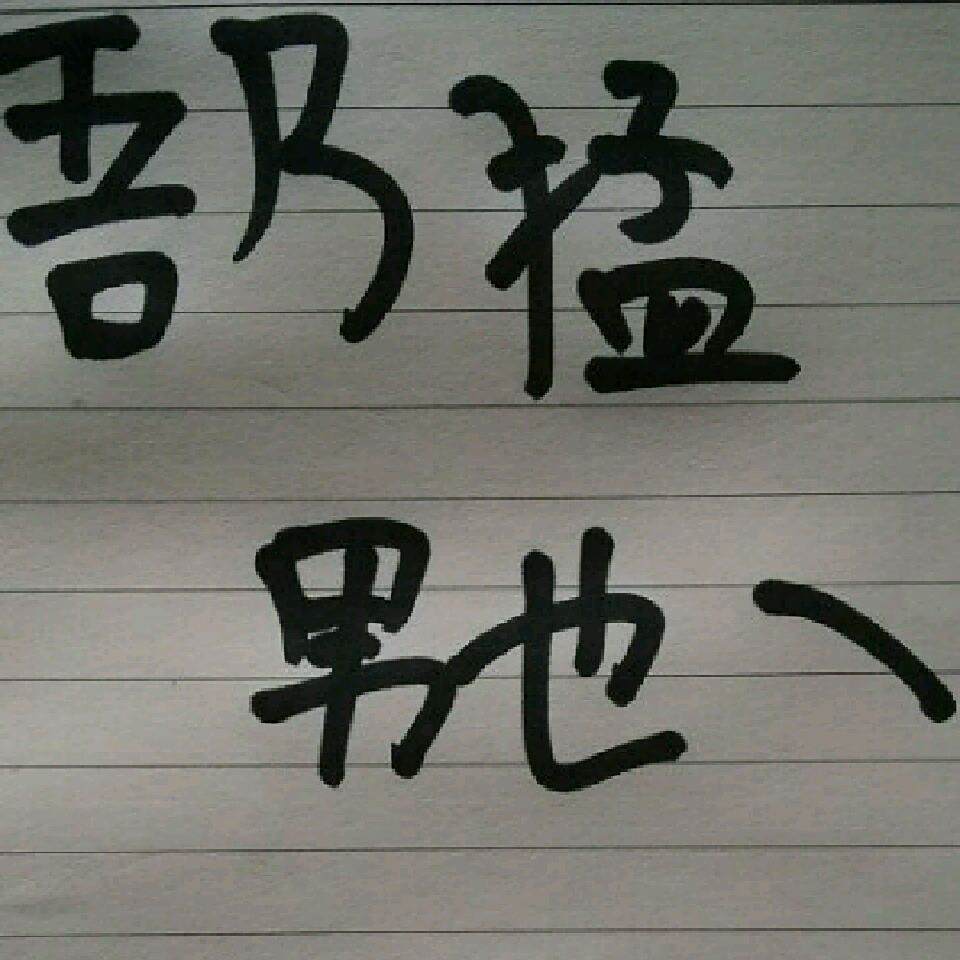 吾乃猛
男也、